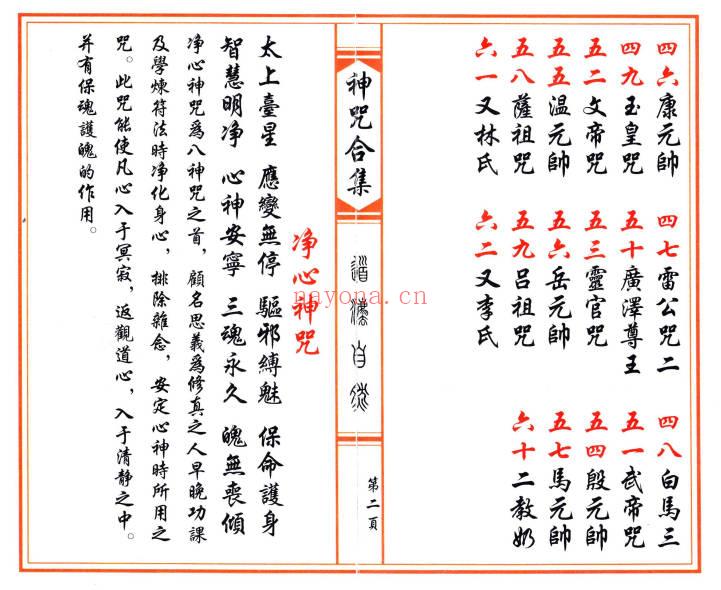 四六康元帥 四七雷公咒二 四八白馬三
四九玉皇咒 五十廣澤尊王 五一武帝咒
五二文帝咒 五三靈官咒 五四殷元帥
五五温元帥 五六岳元帥 五七馬元帥
五八薩祖咒 五九呂祖咒 六十二教奶
六一又林氏 六二又李氏
神咒合集
道法自然
第二頁
净心神咒
太上臺星 應變無停 驅邪縛魅 保命護身
智慧明净 心神安寧 三魂永久 魄無喪傾
净心神咒爲八神咒之首，顧名思義爲修真之人早晚功課
及學煉符法時净化身心，排除雜念，安定心神時所用之
咒。此咒能使凡心入于冥寂，返觀道心，入于清静之中。
并有保魂護魄的作用。
nayona.cn